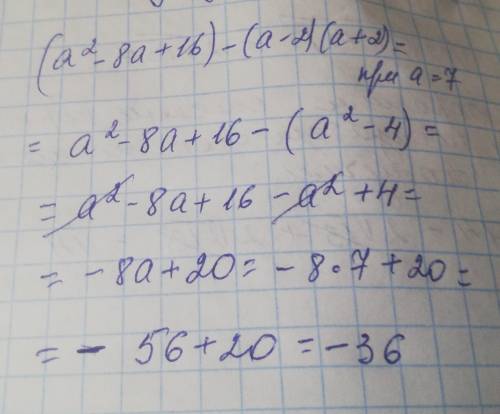 (a² - 8a + 16) - (a - 2)(a + 2) =
при a = 7
= a² - 8a + 16 - (a² - 4) =
= a² - 8a + 16 - a² + 4 =
= - 8a + 20 = - 8 · 7 + 20 =
= - 56 + 20 = - 36